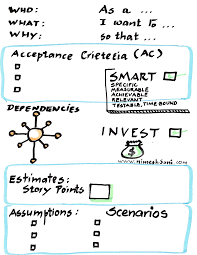 WHO: As a ...
WHAT: I want to ...
WHY: so that ...
Acceptance Crieteria (AC)
SMART
SPECIFIC
MEASURABLE
ACHIEVABLE
RELEVANT
TESTABLE, TIME BOUND
DEPENDENCIES
INVEST
$
www.NimeshSoni.com
Estimates:
Story Points
Assumptions: Scenarios